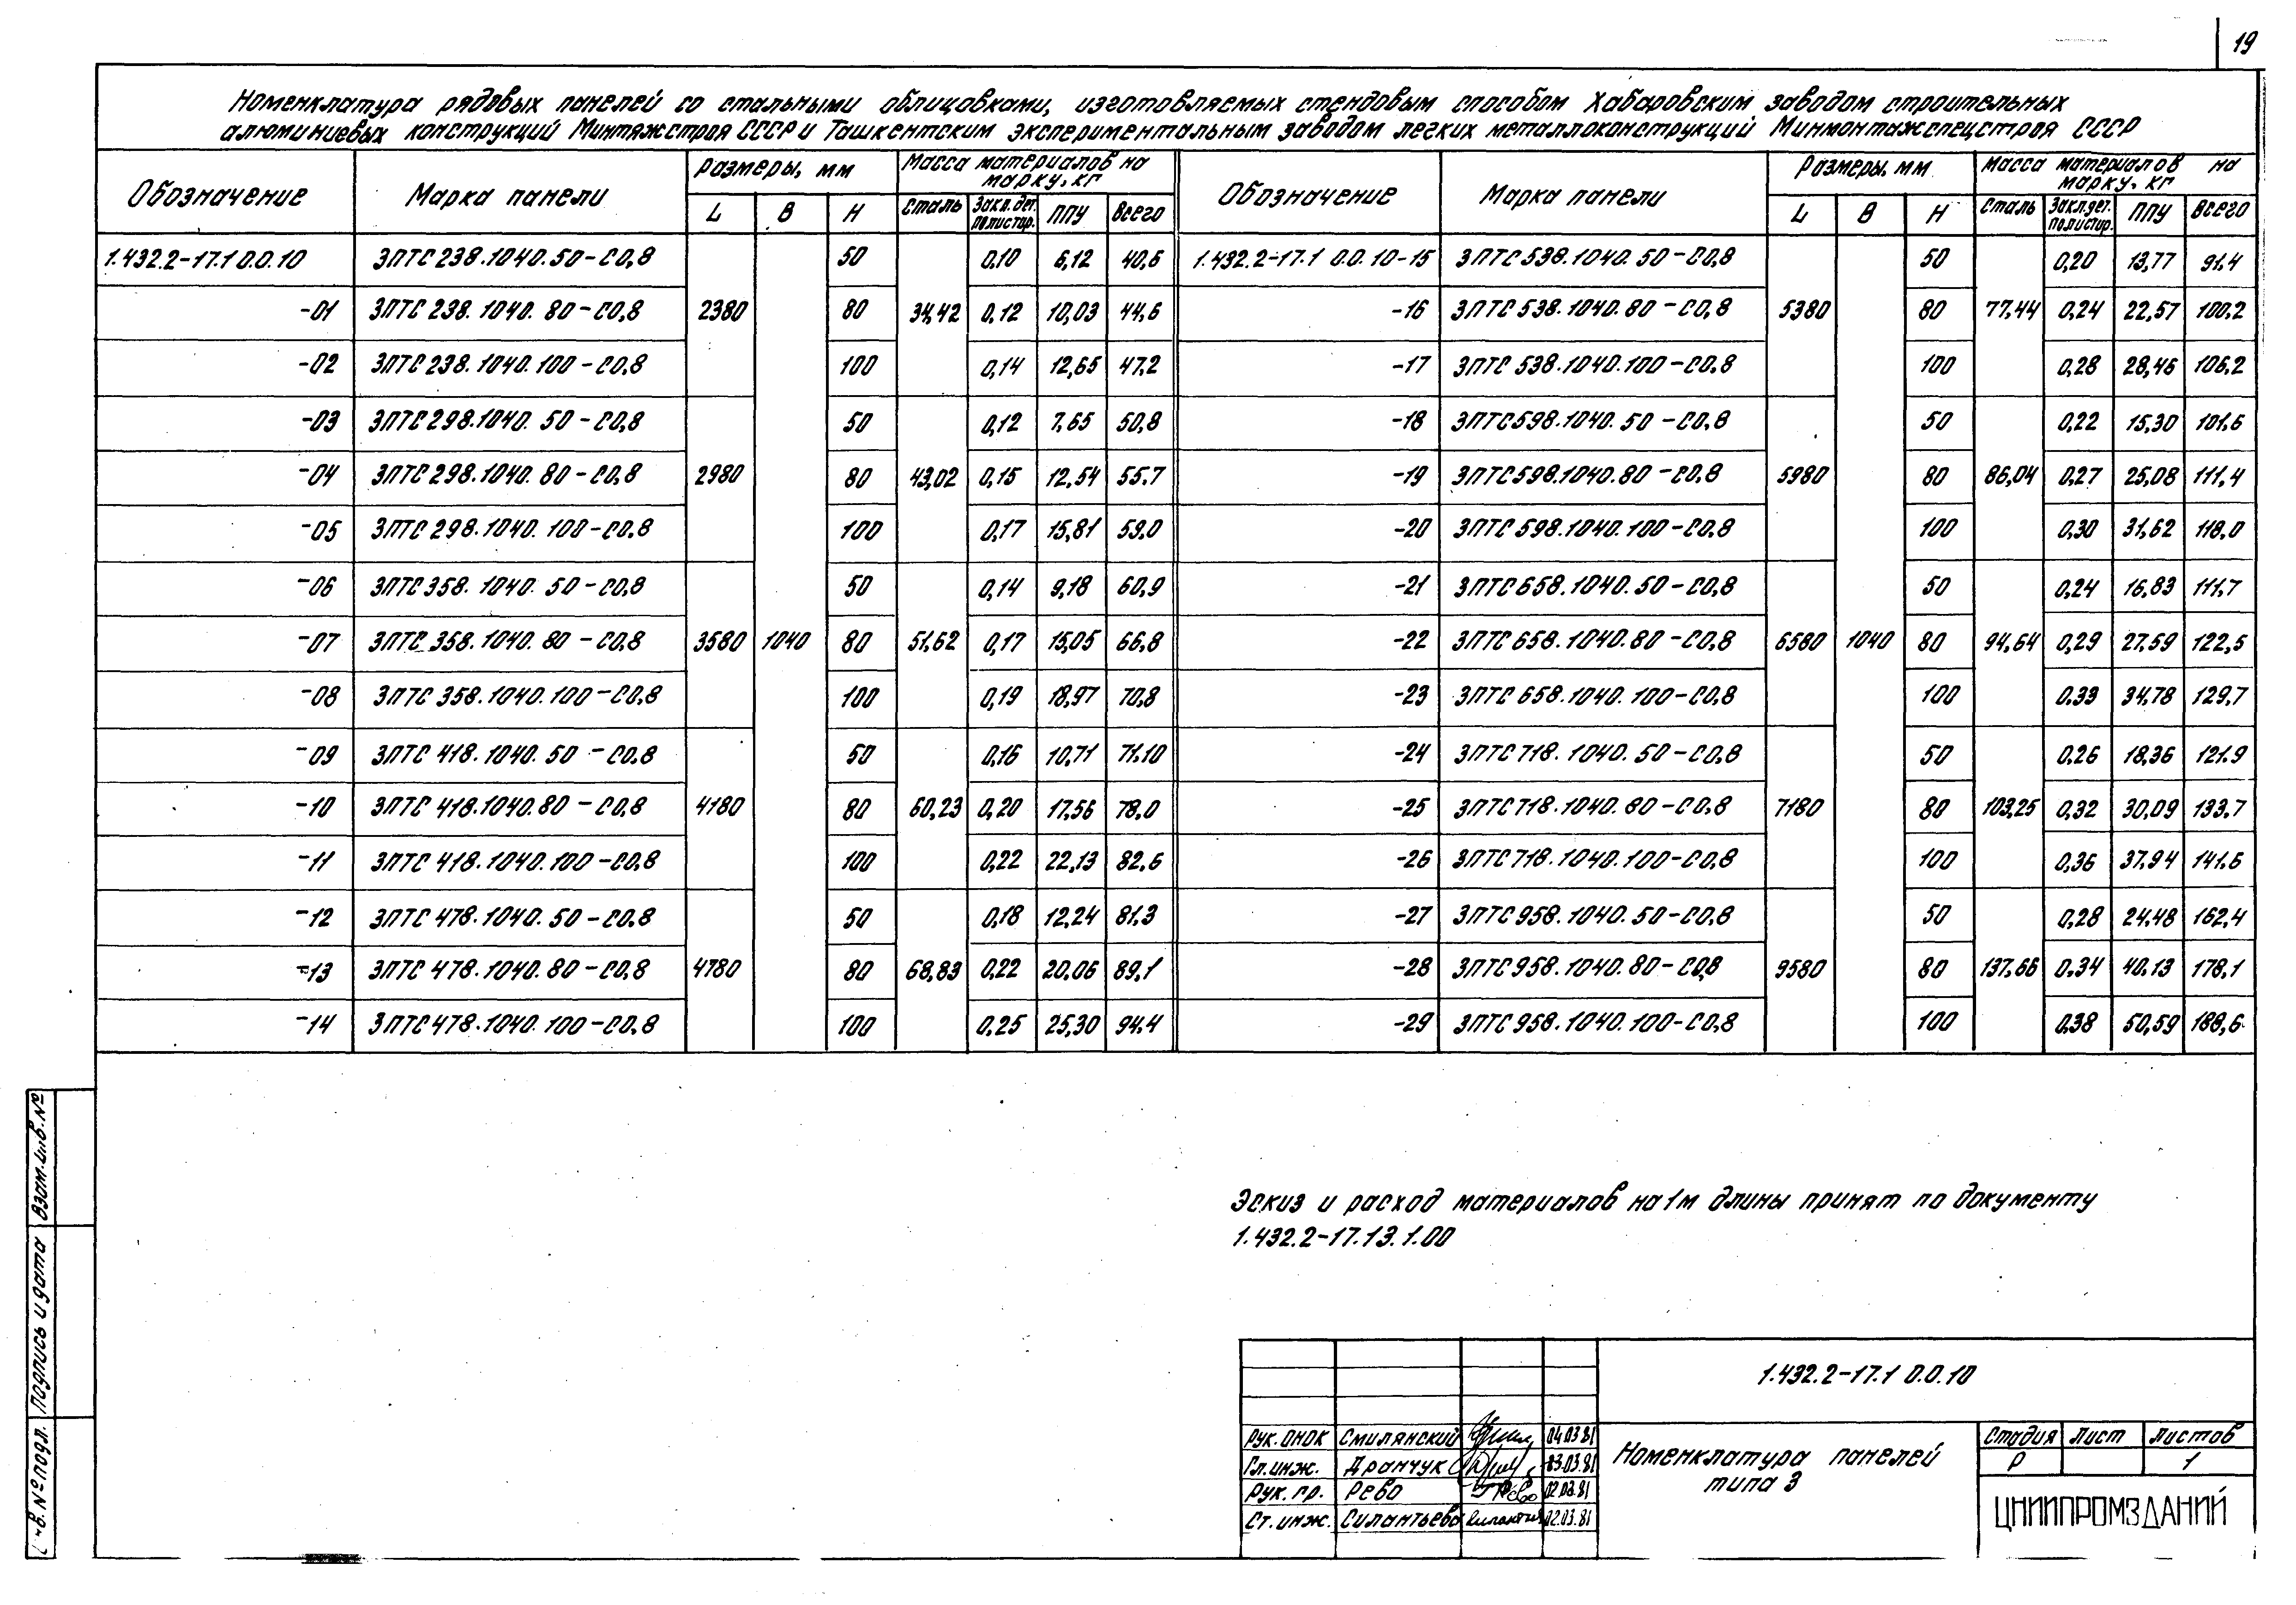 19
Номенклатура рядовых панелей со стальными облицовками, изготовляемых стендовым способом Хабаровским заводом строительных
алюминиевых конструкций Минтяжстроя СССР и Ташкентским экспериментальным заводом легких металлоконструкций Минмонтажспецстроя СССР
Обозначение Марка панели Размеры, мм Масса материалов на марку, кг Обозначение Марка панели Размеры, мм Масса материалов на марку, кг
L В Н Сталь Закл. дет. полистир. ППУ Всего L В Н Сталь Закл. дет. полистир. ППУ Всего
1.432.2-17.1 0.0.10 3ПТС 238.1040.50-С0,8 50 0,10 6,12 40,6 1.432.2-17.1 0.0.10-15 3ПТС 538.1040.50-С0,8 50 0,20 13,77 91.4
-01 3ПТС 238.1040.80-С0,8 2380 80 34,42 0,12 10,03 44,6 -16 3ПТС 538.1040.80-С0,8 5380 80 77,44 0,24 22,57 100,2
-02 3ПТС 238.1040.100-С0,8 100 0,14 12,65 47,2 -17 3ПТС 538.1040.100-С0,8 100 0,28 28,46 106,2
-03 3ПТС 298.1040.50-С0,8 50 0,12 7,65 50,8 -18 3ПТС 598.1040.50-С0,8 50 0,22 15,30 101.6
-04 3ПТС 298.1040.80-С0,8 2980 80 43,02 0,15 12,54 55.7 -19 3ПТС 598.1040.80-С0,8 5980 80 86,04 0,27 25,08 111,4
-05 3ПТС 298.1040.100-С0,8 100 0,17 15,81 59.0 -20 3ПТС 598.1040.100-С0,8 100 0,30 31,62 118,0
-06 3ПТС 358.1040.50-С0,8 50 0,14 9,18 60,9 -21 3ПТС 658.1040.50-С0,8 50 0,24 16,83 111.7
-07 3ПТС 358.1040.80-С0,8 3580 1040 80 51,62 0,17 15,05 66,8 -22 3ПТС 658.1040.80-С0,8 6580 1040 80 94,64 0,29 27,59 122,5
-08 3ПТС 358.1040.100-С0,8 100 0,19 18,97 70,8 -23 3ПТС 658.1040.100-С0,8 100 0,33 34,78 129,7
-09 3ПТС 418.1040.50-С0,8 50 0,16 10,71 71,10 -24 3ПТС 718.1040.50-С0,8 50 0,26 18,36 121.9
-10 3ПТС 418.1040.80-С0,8 4180 80 60,23 0,20 17,56 78,0 -25 3ПТС 718.1040.80-С0,8 7180 80 103,25 0,32 30,09 133,7
-11 3ПТС 418.1040.100-С0,8 100 0,22 22,13 82,6 -26 3ПТС 718.1040.100-С0,8 100 0,36 37.94 141.6
-12 3ПТС 478.1040.50-С0,8 50 0,18 12,24 81,3 -27 3ПТС 958.1040.50-С0,8 50 0,28 24,48 162,4
-13 3ПТС 478.1040.80-С0,8 4780 80 68,83 0,22 20,06 89,1 -28 3ПТС 958.1040.80-С0,8 9580 80 137,66 0,34 40,13 178,1
-14 3ПТС 478.1040.100-С0,8 100 0,25 25,30 94,4 -29 3ПТС 958.1040.100-С0,8 100 0,38 50,59 188,6
Эскиз и расход материалов на 1м длины принят по документу
1.432.2-17.13.1.00
1.432.2-17.1 0.0.10
Рук. ОНОК Смилянский 04.03.81
Гл. инж. Дранчук 03.03.81
Рук. гр. Рево Рево 02.03.81
Ст. инж. Силантьева 02.03.81
Номенклатура панелей
типа 3
Стадия Лист Листов
Р 1
ЦНИИПРОМЗДАНИЙ
Взам. инв. №
Подпись и дата
в. № подл.